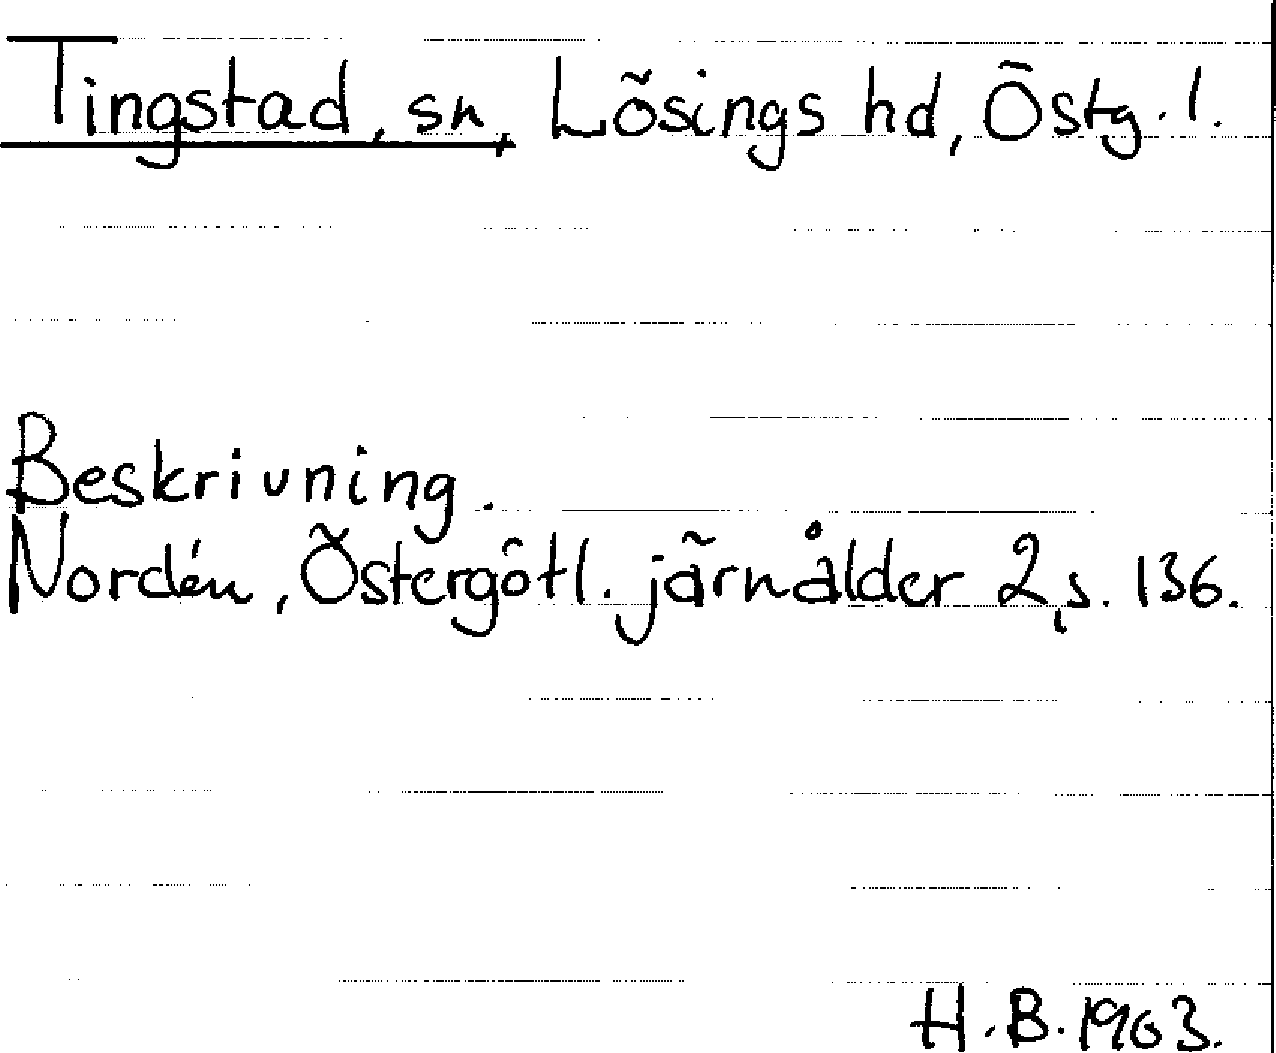 Tingstad, sn, Lösings hd, Östg. l.
Beskrivning.
Nordén, Östergötl. järnålder 2, s. 136.
H. B. 1963.